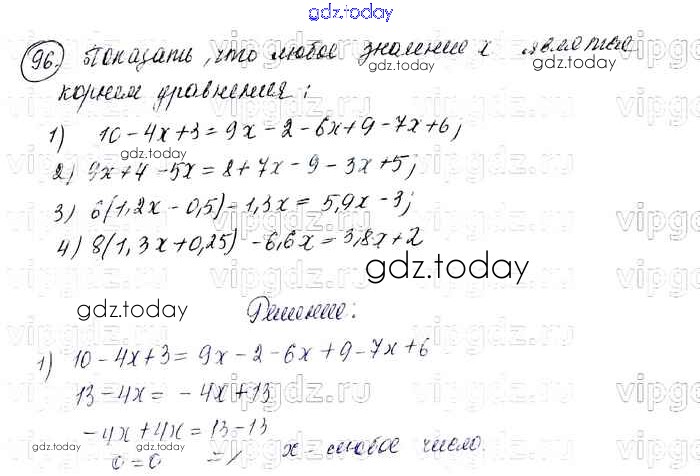 gdz.today
96. Показать, что любое значение x является
корнем уравнения:
1) 10-4x+3=9x-2-6x+9-7x+6;
gdz.today
2) 9x+4-5x=8+7x-9-3x+5;
3) 6(1,2x-0,5)-1,3x=5,9x-3;
4) 8(1,3x+0,25)-6,6x=3,8x+2
gdz.today
gdz.today
Решение:
1) 10-4x+3=9x-2-6x+9-7x+6
13-4x=-4x+13
-4x+4x=13-13
gdz.today
0=0 => x-любое число.